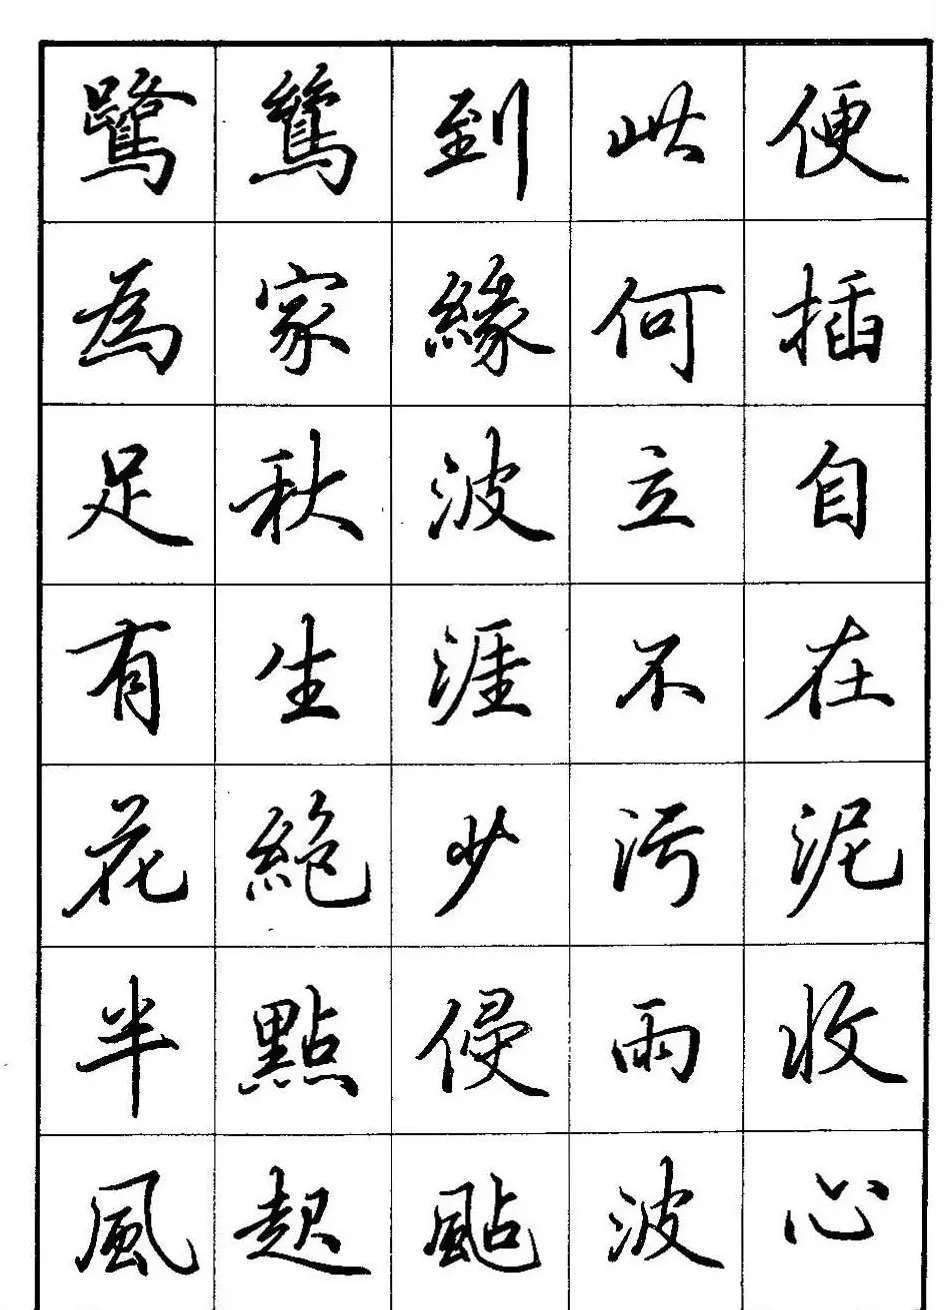 鷺鷥到此便
為家緣何插
足秋波立自
有生涯不在
花絕少污泥
半點侵雨收
風起颭波心